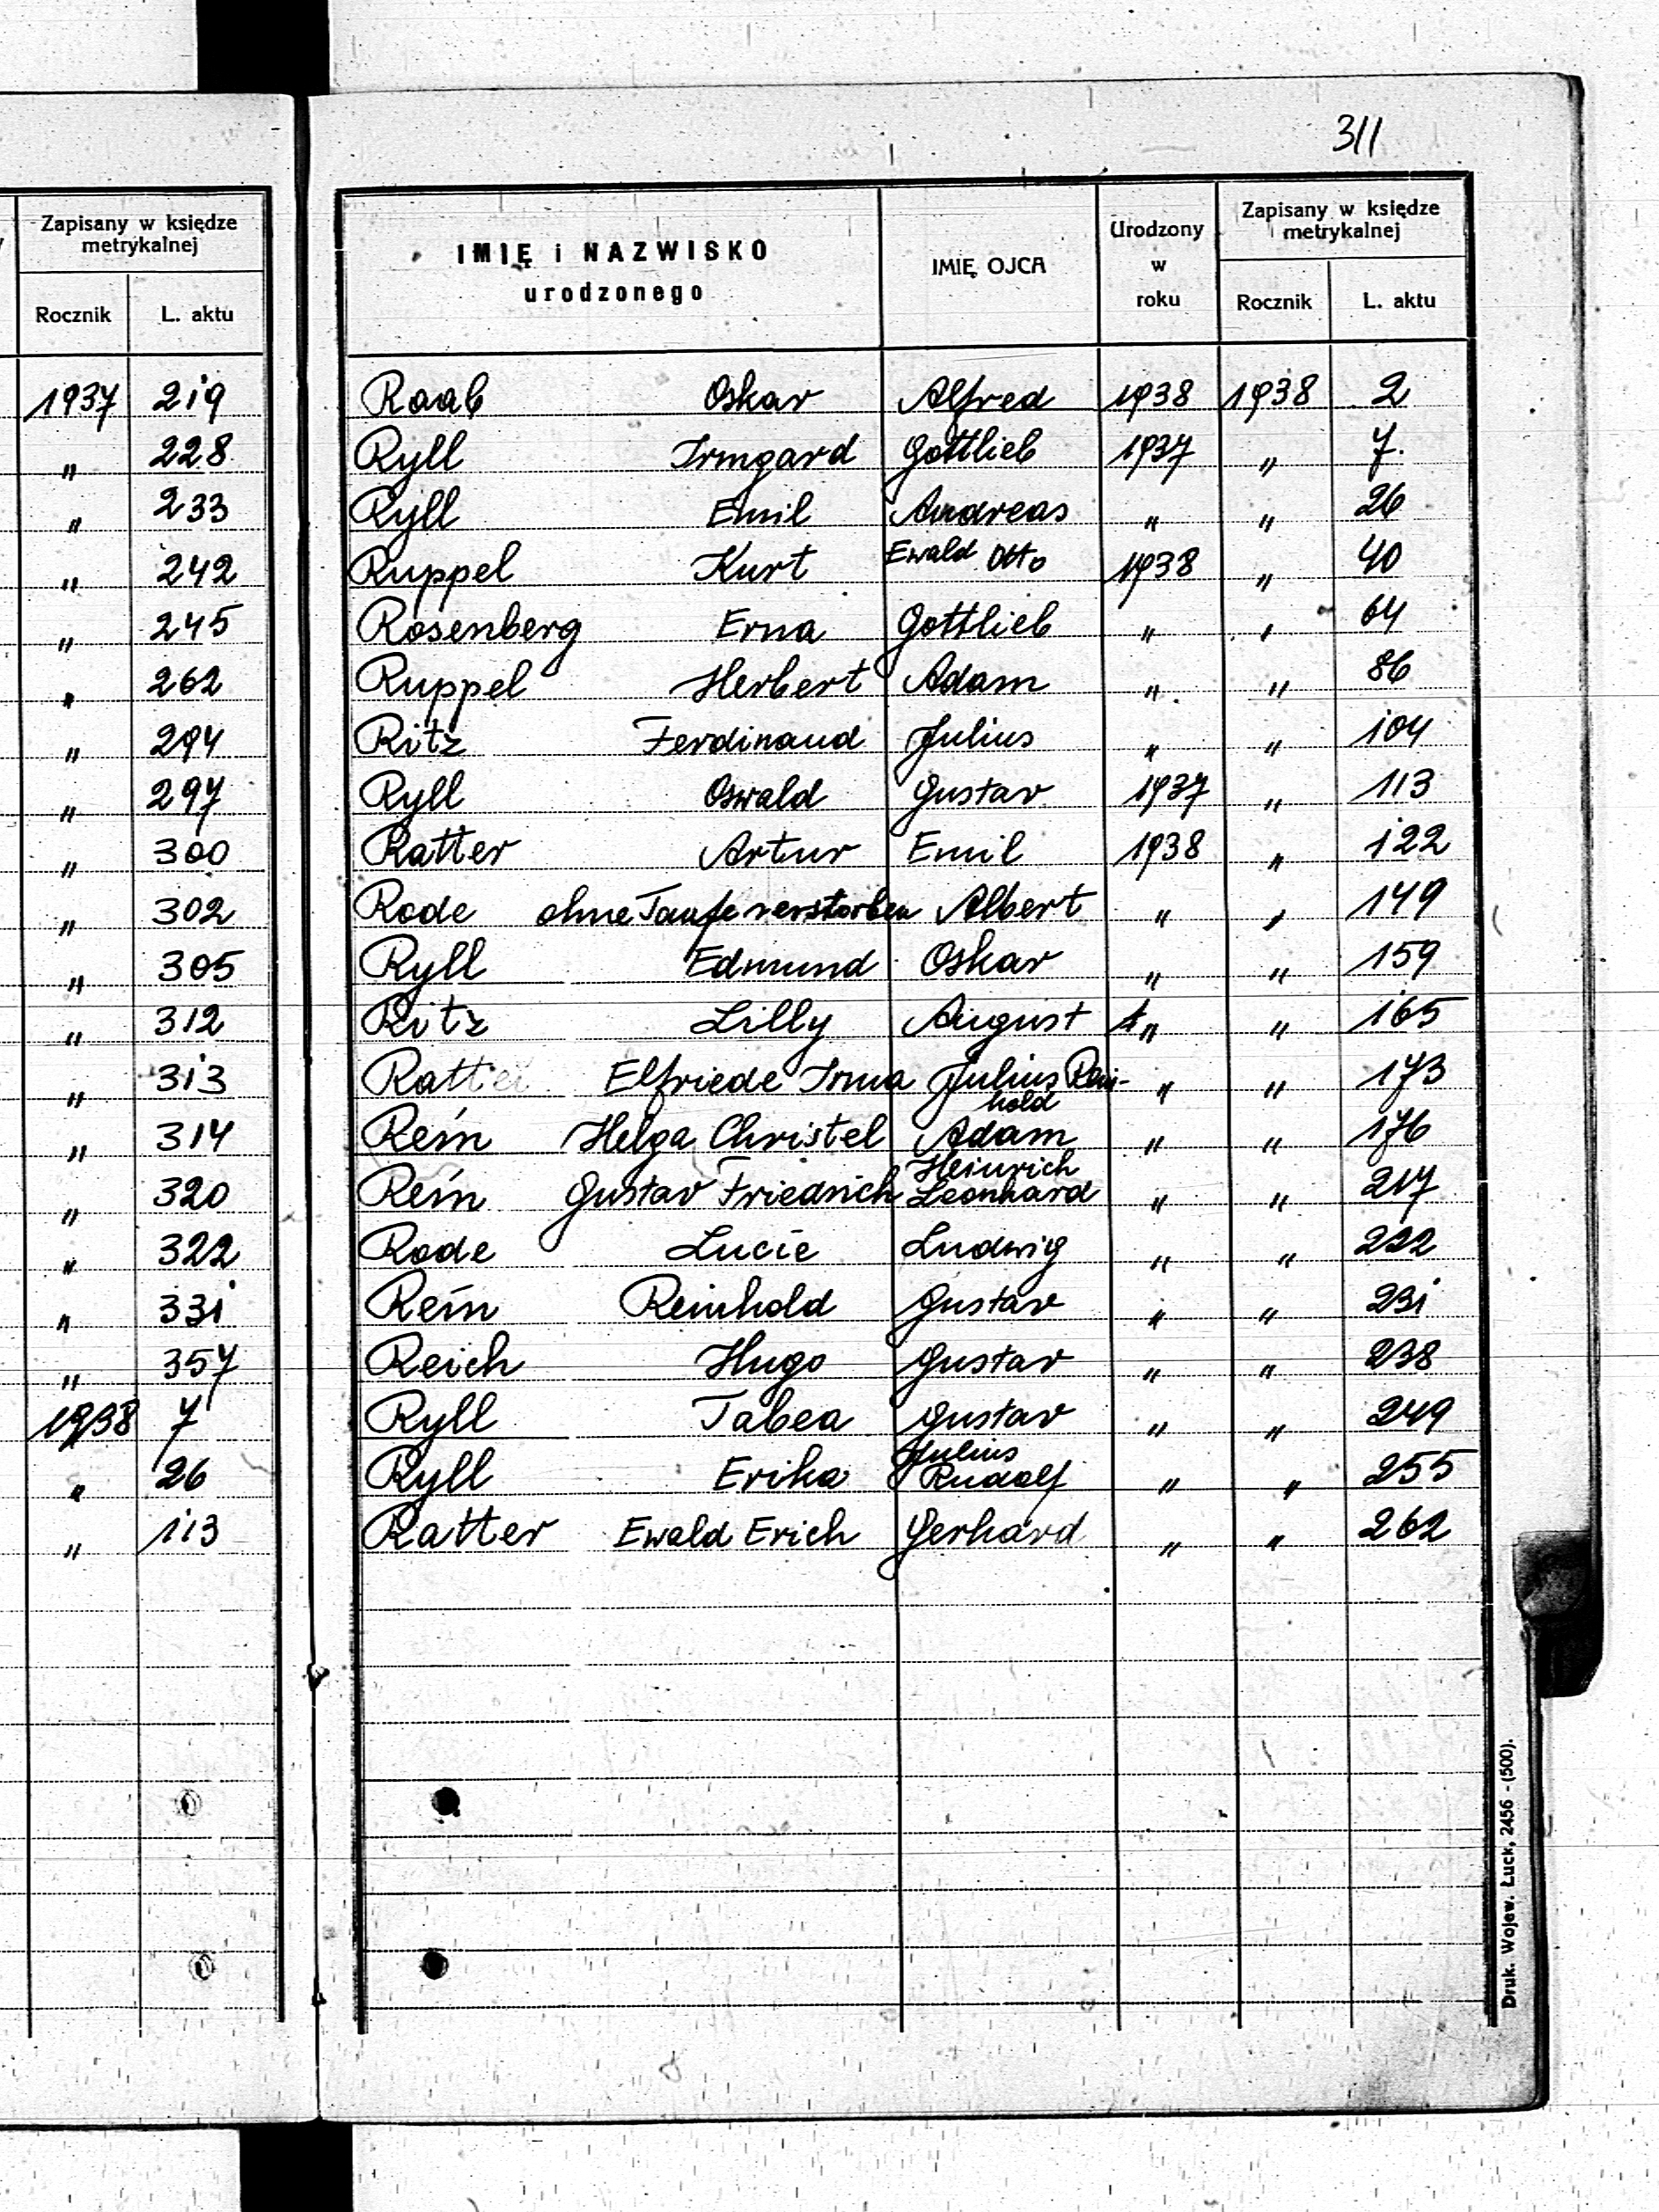 311
Zapisany w księdze
metrykalnej
Rocznik L. aktu
1937 219
" 228
" 233
" 242
" 245
" 262
" 294
" 297
" 300
" 302
" 305
" 312
" 313
" 314
" 320
" 322
" 331
" 357
1938 7
" 26
" 113
IMIĘ i NAZWISKO
urodzonego
IMIĘ OJCA
Urodzony
w
roku
Zapisany w księdze
metrykalnej
Rocznik L. aktu
Raab Oskar Alfred 1938 1938 2
Ryll Irmgard Gottlieb 1937 " 7.
Ryll Emil Andreas " " 26
Ruppel Kurt Ewald Otto 1938 " 40
Rosenberg Erna Gottlieb " " 64
Ruppel Herbert Adam " " 86
Ritz Ferdinand Julius " " 104
Ryll Oswald Gustav 1937 " 113
Ratter Artur Emil 1938 " 122
Rode ohne Taufe verstorben Albert " " 149
Ryll Edmund Oskar " " 159
Ritz Lilly August " " 165
Ratter Elfriede Irma Julius Rein- " " 173
hold
Rein Helga Christel Adam " " 176
Heinrich
Rein Gustav Friedrich Leonhard " " 217
Rode Lucie Ludwig " " 222
Rein Reinhold Gustav " " 231
Reich Hugo Gustav " " 238
Ryll Tabea Gustav " " 249
Julius
Ryll Erika Rudolf " " 255
Ratter Ewald Erich Gerhard " " 262
Druk. Wojew. Łuck, 2456 - (500).